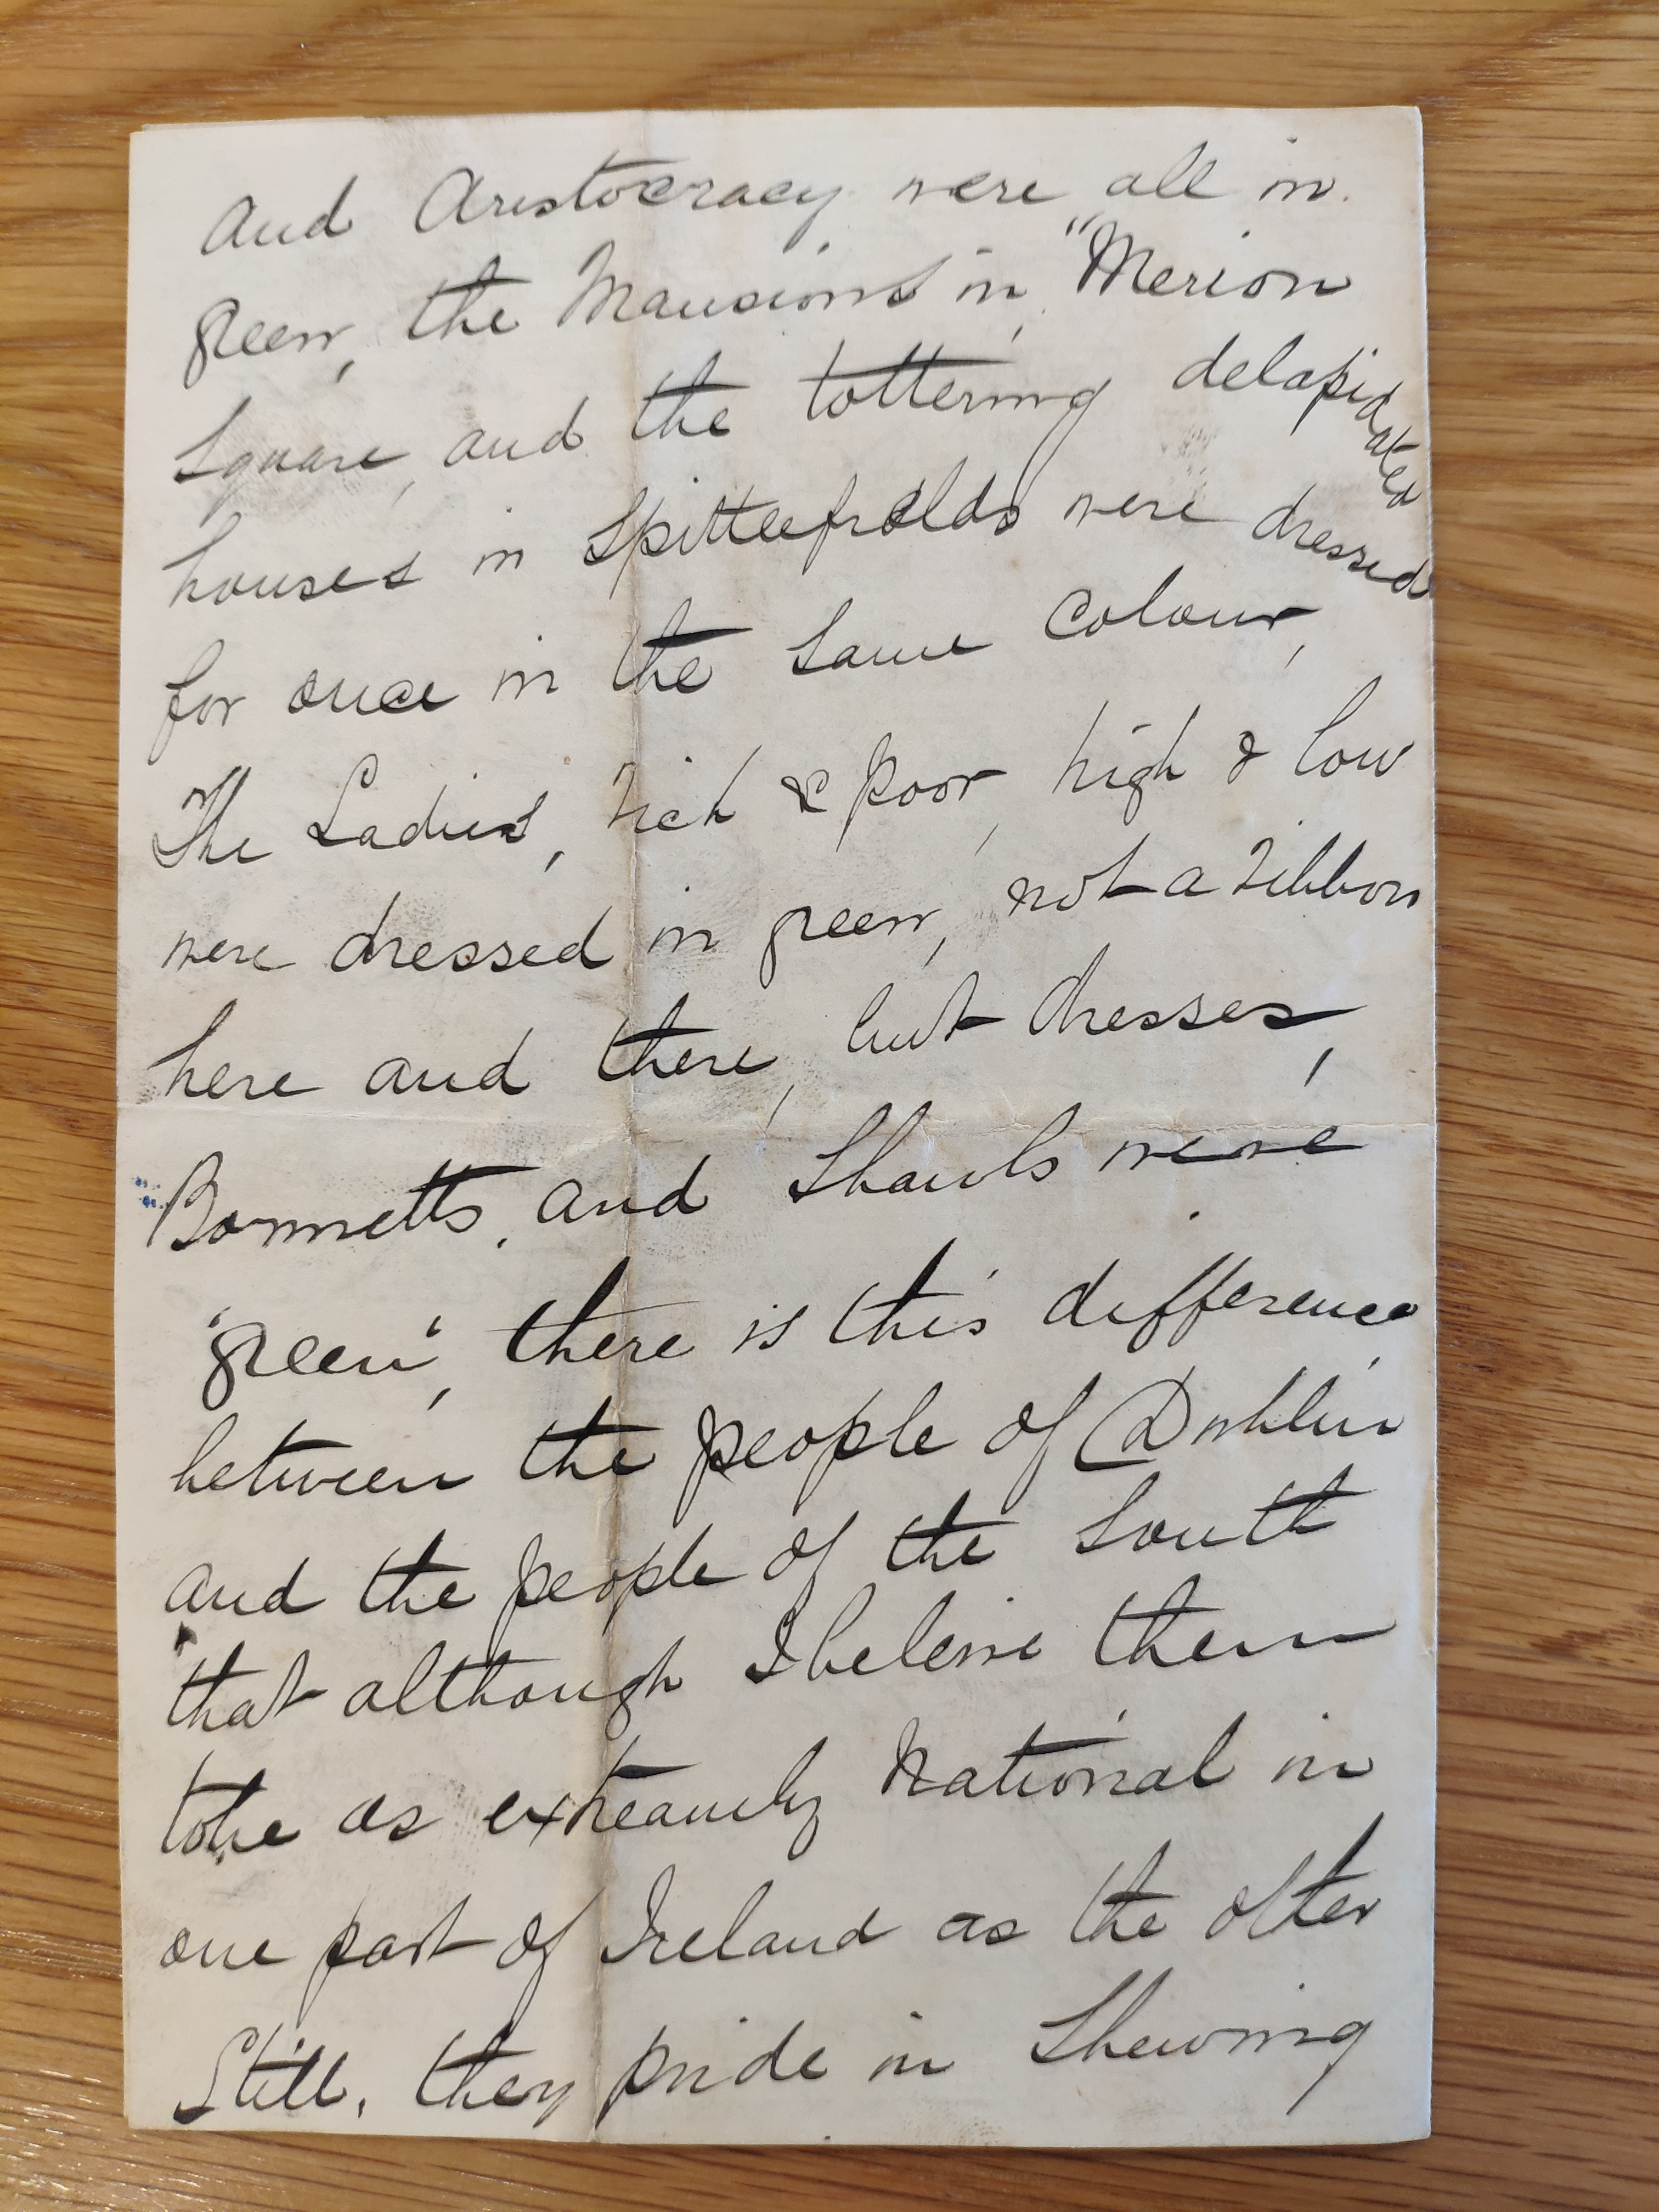 And Aristocracy were all in
green, the Mansions in, "Merion
Square, and the tottering delapidated
houses in Spittlefields were dressed
for once in the same colour,
The Ladies, rich & poor, high & low
were dressed in green, not a ribbon
here and there, but dresses,
Bonnetts, and Shawls were
'green', there is this difference
between the people of Dublin
and the people of the South
that although I beleive them
to be as extreamly National in
one part of Ireland as the other
Still, they pride in Shewing